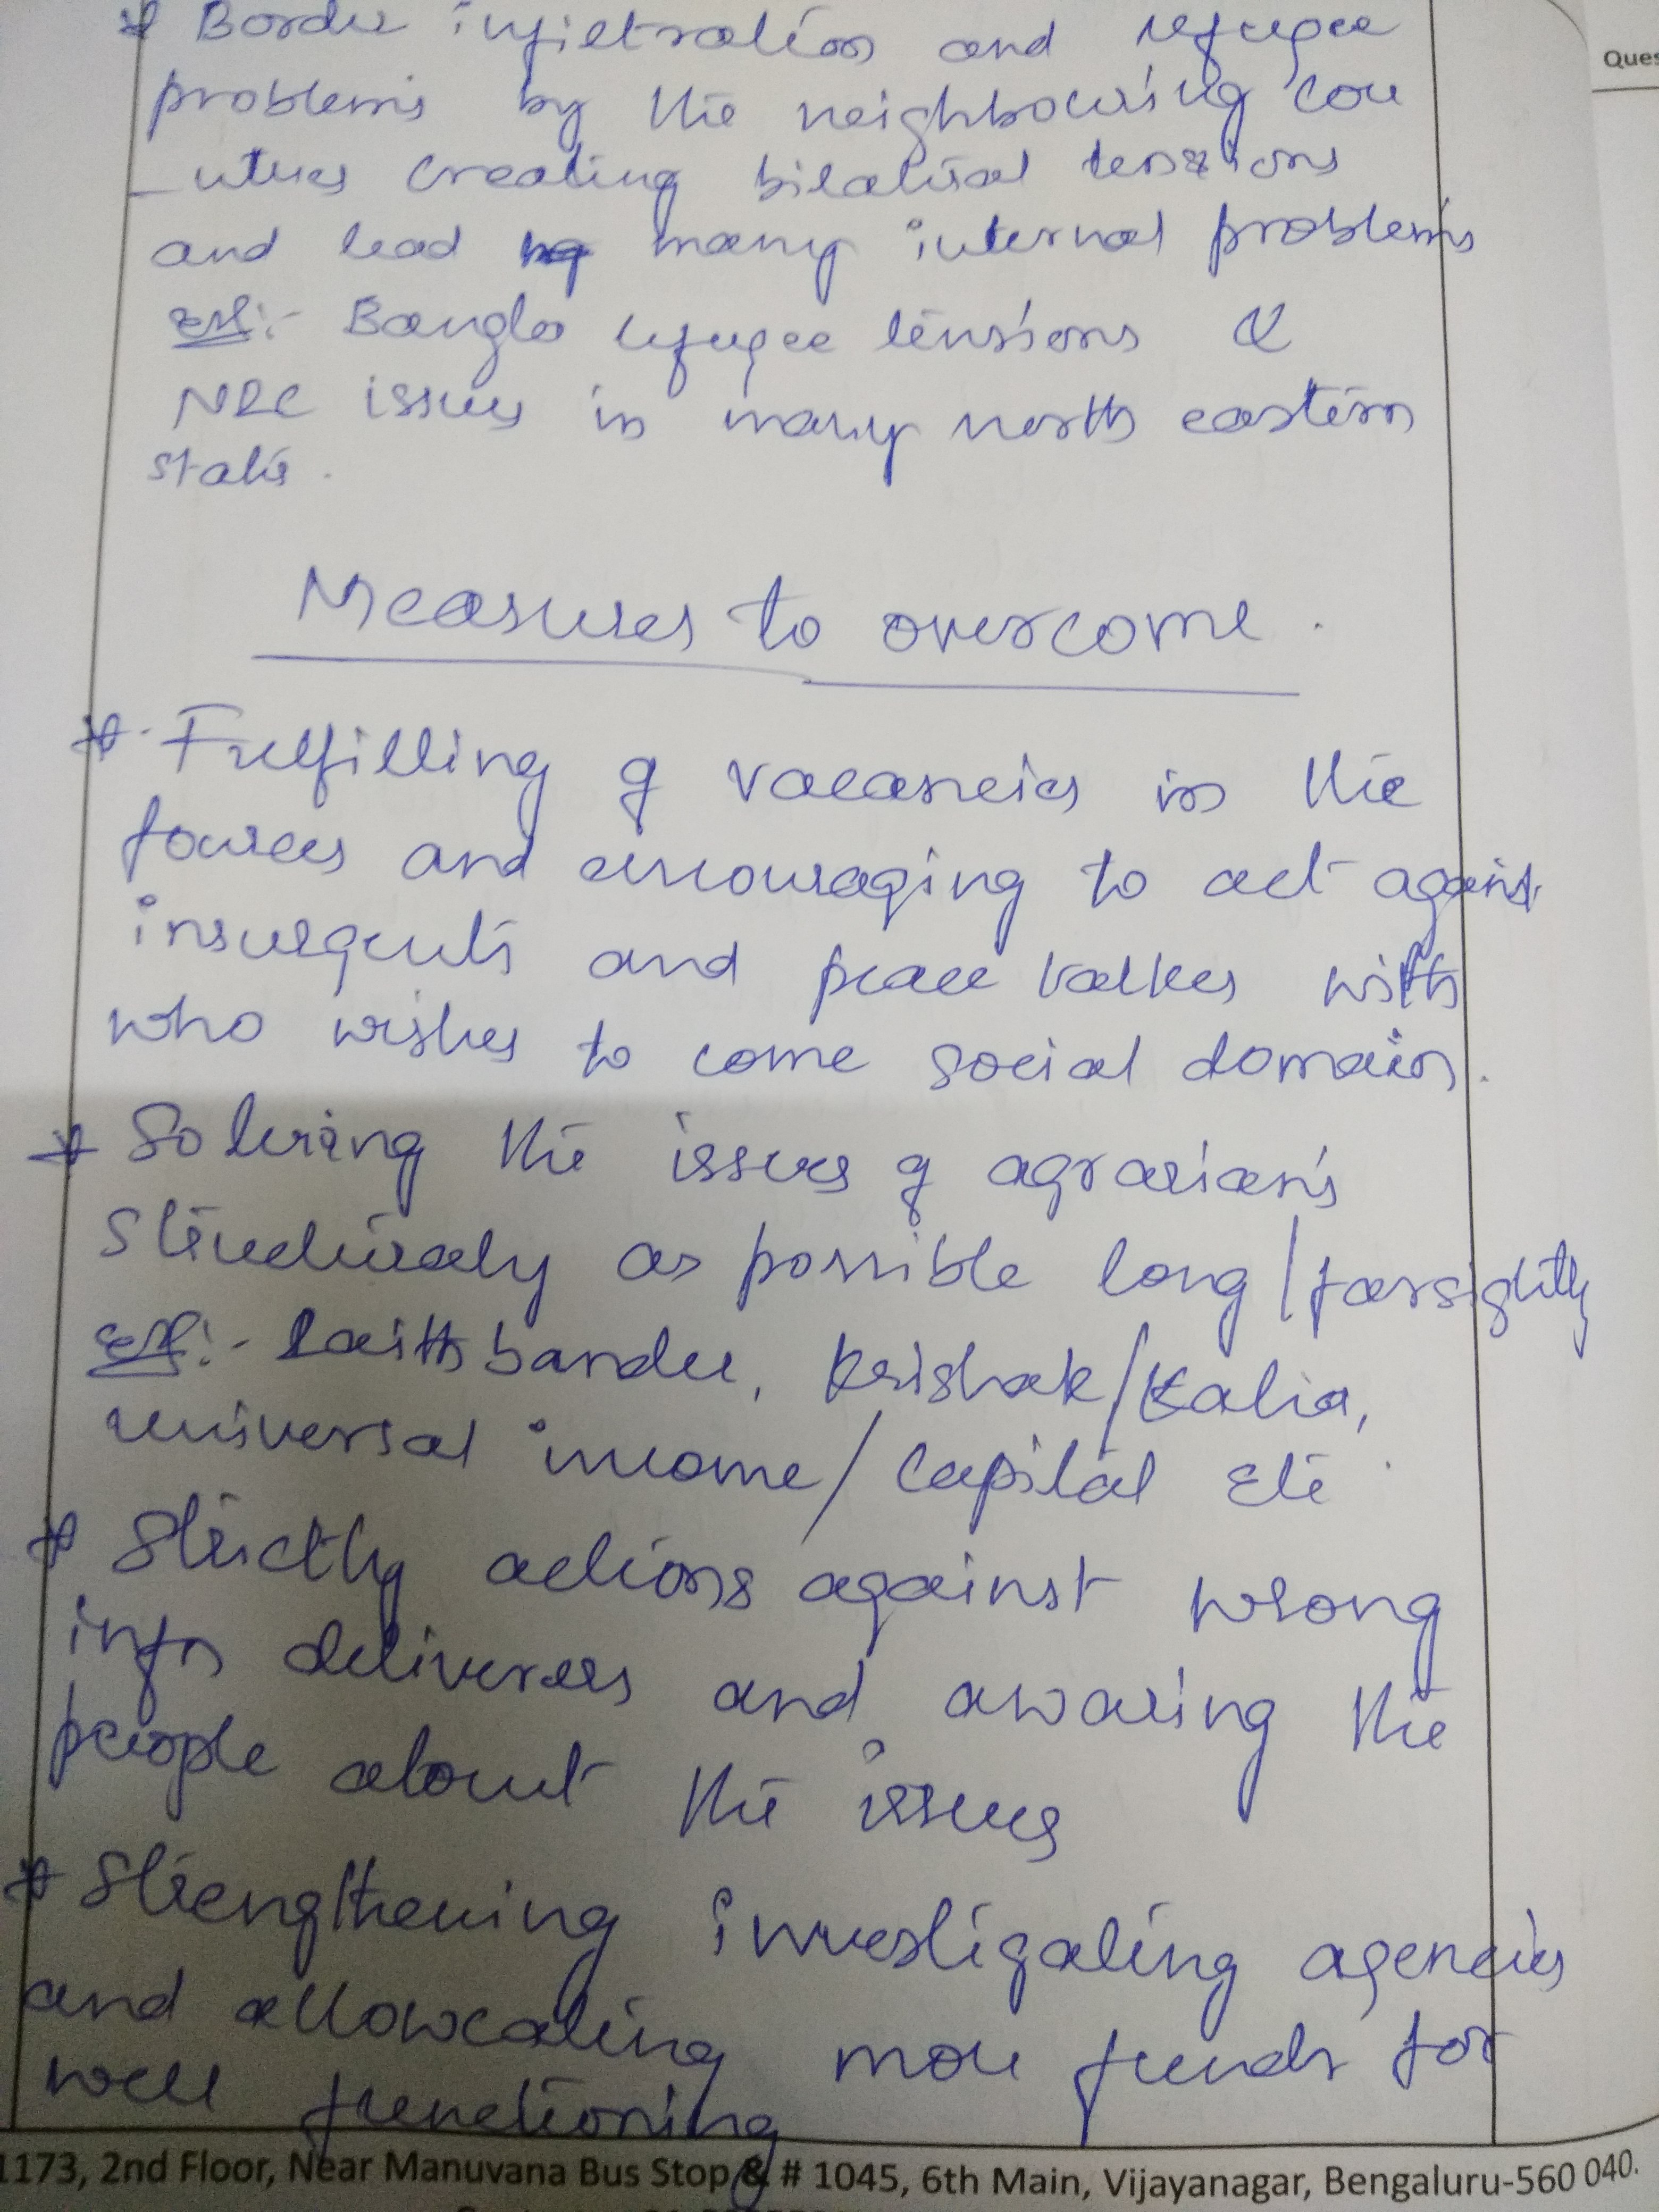 * Border infiltration and refugee
Ques
problems by the neighbouring cou
_ntries creating bilateral tensions
and lead many internal problems
ex:- Bangla refugee tensions &
NRC issues in many north eastern
states.
Measures to overcome.
* Fulfilling of vacancies in the
fources and encouraging to act against
insurgents and peace talkes with
who wishes to come social domain.
* Solving the issues of agrarians
structuraly as possible long/farsightly
ex:- Raithbandu, Krishak/Kalia,
universal income/capital etc.
* Strictly actions against wrong
infn deliverers and awaring the
people about the issues
* Strengthening investigating agencies
and allowcating more funds for
well functioning
1173, 2nd Floor, Near Manuvana Bus Stop & # 1045, 6th Main, Vijayanagar, Bengaluru-560 040.